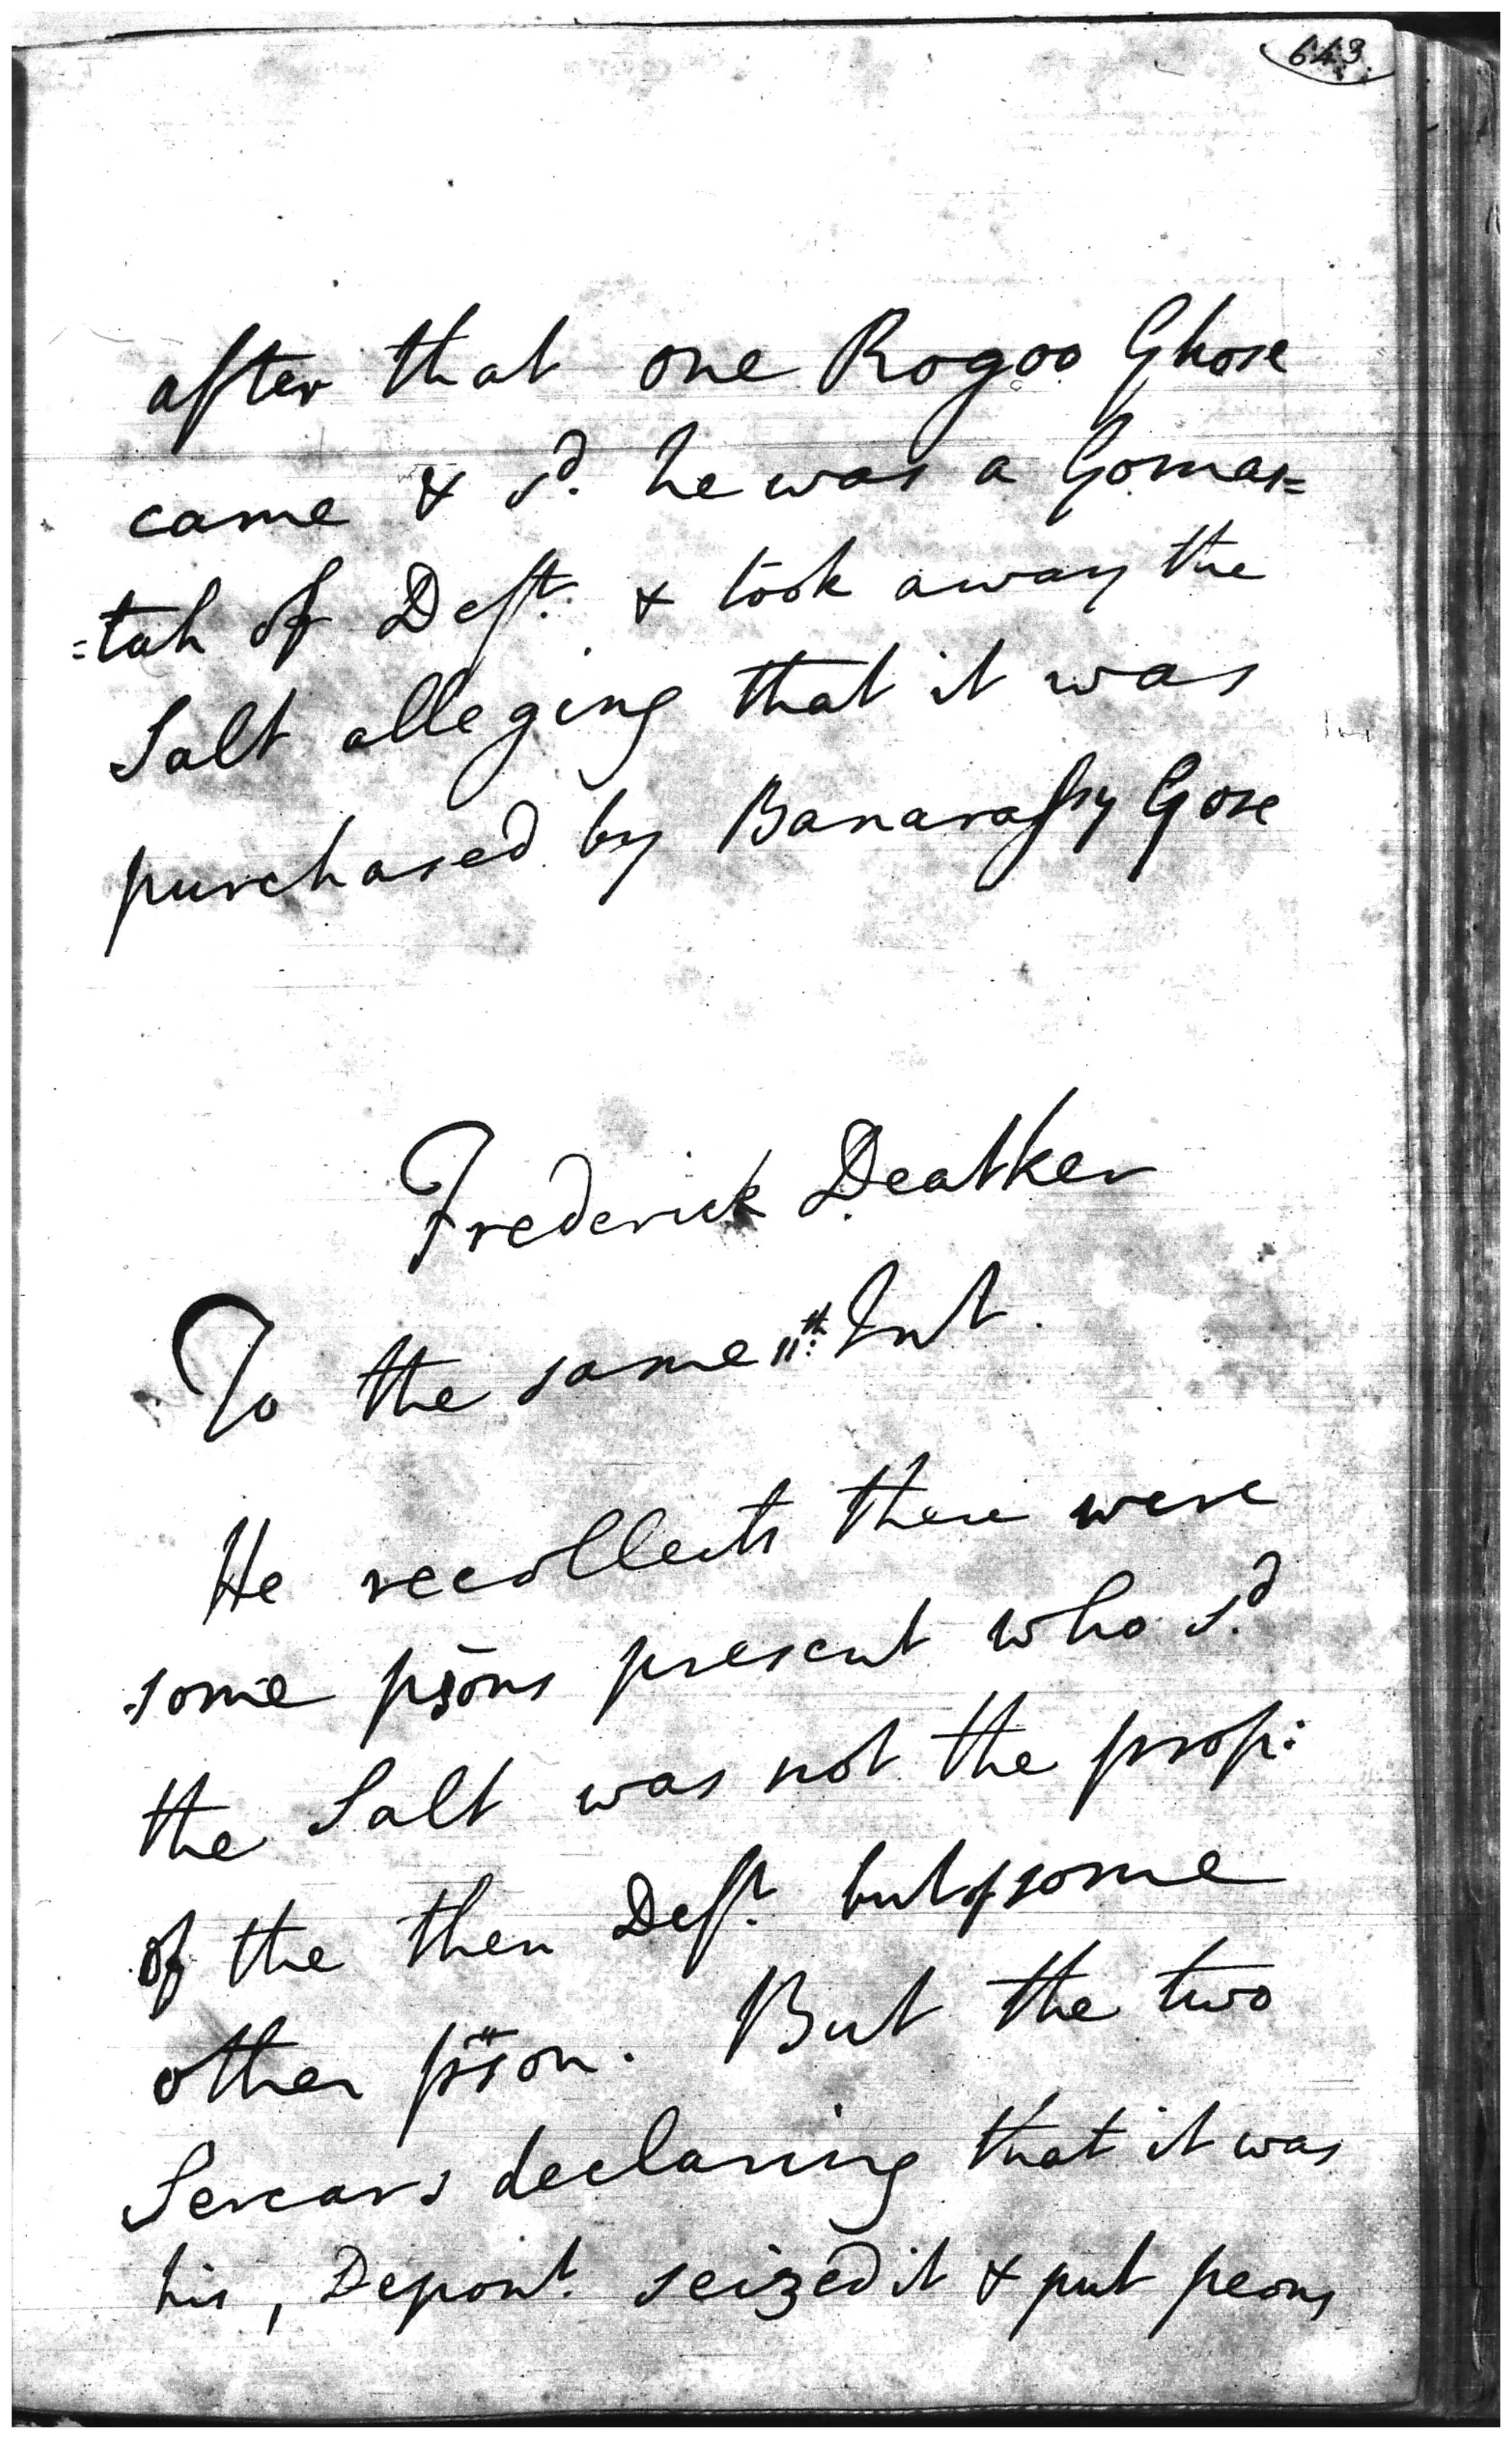 643
after that one Rogoo Ghose
came & sd. he was a Gomas=
=tah of Deft. & took away the
Salt alleging that it was
purchased by Banarassy Gose
Frederick Deatker
To the same 11th: Int.
He recollects there were
some psons present who sd.
the Salt was not the prop:
of the then Deft. but of some
other pson. But the two
Sercars declaring that it was
his, Depont. seized it & put peons